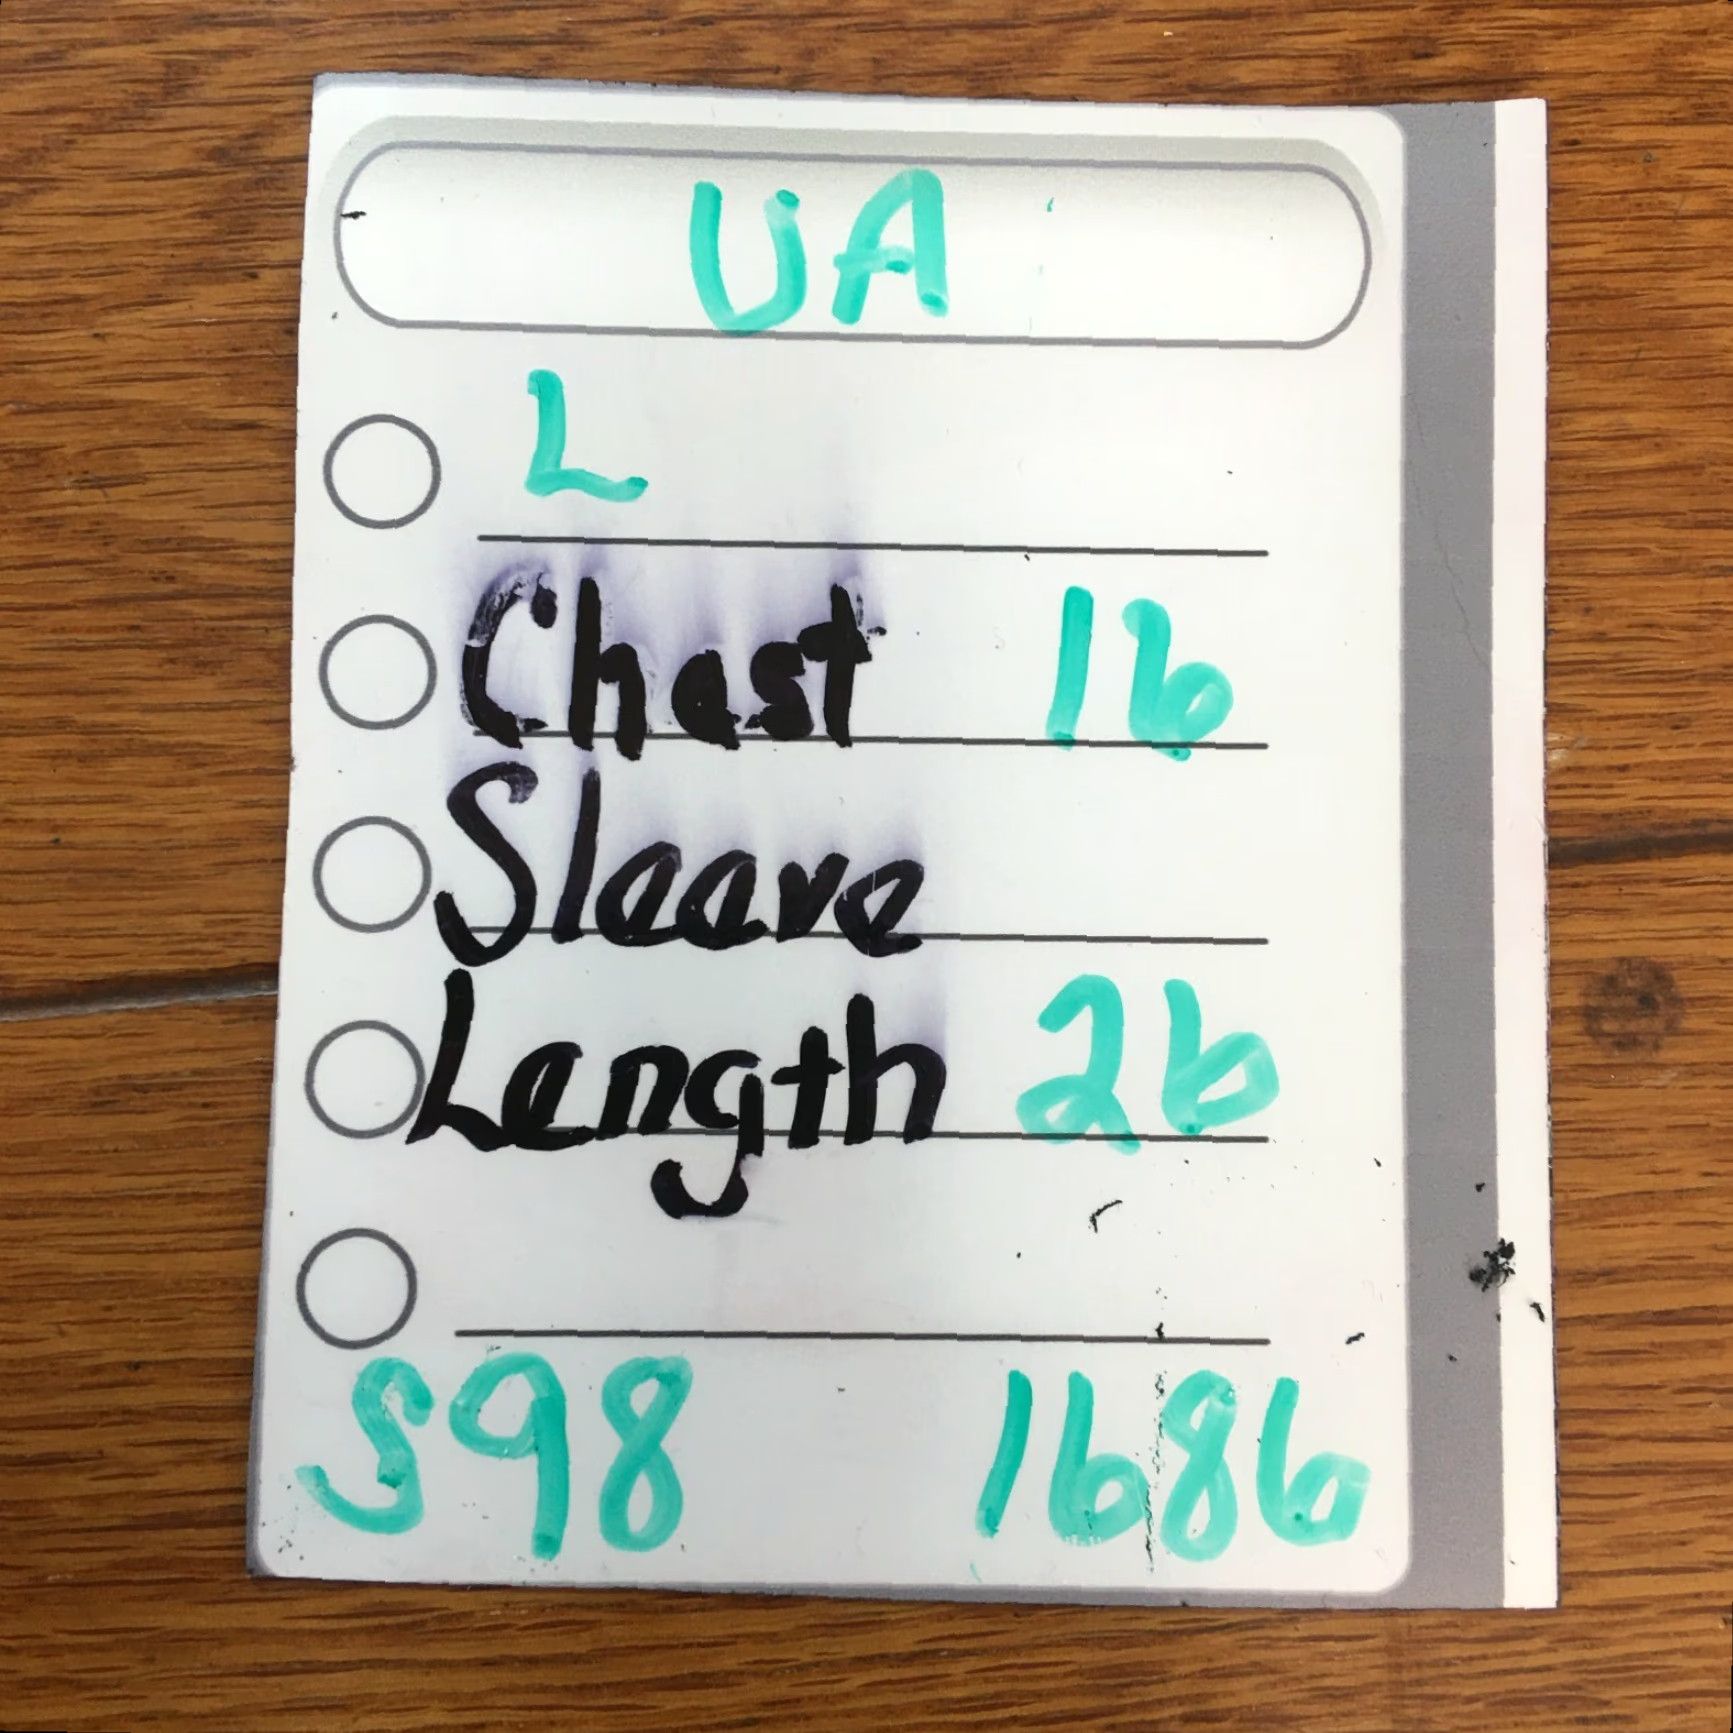 UA
L
Chest 16
Sleeve
Length 26
S98 1686